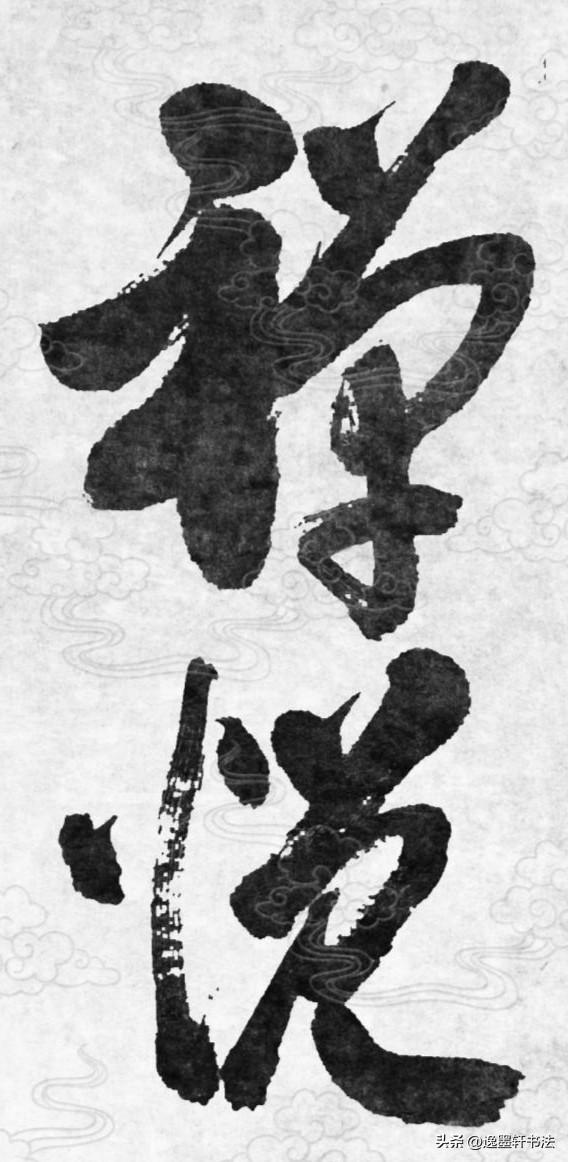 禅
悦
头条 @逸墨轩书法